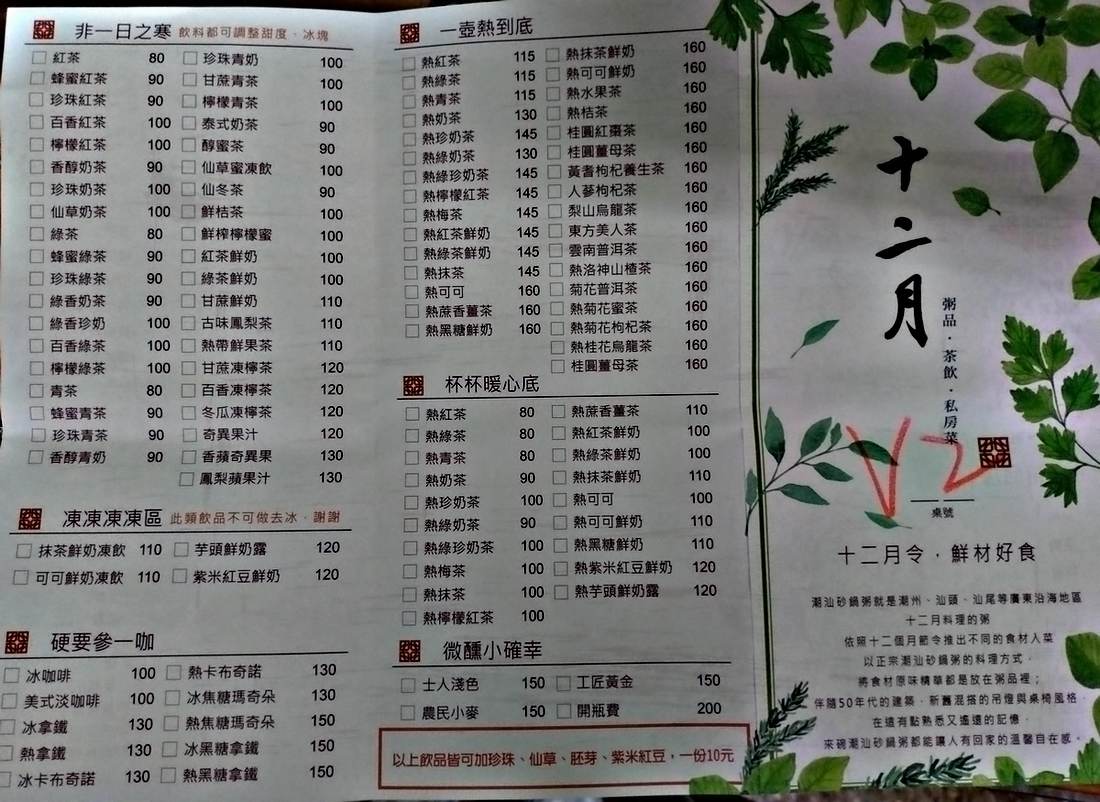 非一日之寒 飲料都可調整甜度、冰塊
紅茶 80
蜂蜜紅茶 90
珍珠紅茶 90
百香紅茶 100
檸檬紅茶 100
香醇奶茶 90
珍珠奶茶 100
仙草奶茶 100
綠茶 80
蜂蜜綠茶 90
珍珠綠茶 90
綠香奶茶 90
綠香珍奶 100
百香綠茶 100
檸檬綠茶 100
青茶 80
蜂蜜青茶 90
珍珠青茶 90
香醇青奶 90
珍珠青奶 100
甘蔗青茶 100
檸檬青茶 100
泰式奶茶 90
醇蜜茶 90
仙草蜜凍飲 100
仙冬茶 90
鮮桔茶 100
鮮榨檸檬蜜 100
紅茶鮮奶 100
綠茶鮮奶 100
甘蔗鮮奶 110
古味鳳梨茶 110
熱帶鮮果茶 110
甘蔗凍檸茶 120
百香凍檸茶 120
冬瓜凍檸茶 120
奇異果汁 120
香蘋奇異果 130
鳳梨蘋果汁 130
凍凍凍凍區 此類飲品不可做去冰、謝謝
抹茶鮮奶凍飲 110
可可鮮奶凍飲 110
芋頭鮮奶露 120
紫米紅豆鮮奶 120
硬要參一咖
冰咖啡 100
美式淡咖啡 100
冰拿鐵 130
熱拿鐵 130
冰卡布奇諾 130
熱卡布奇諾 130
冰焦糖瑪奇朵 130
熱焦糖瑪奇朵 150
冰黑糖拿鐵 150
熱黑糖拿鐵 150
一壺熱到底
熱紅茶 115
熱綠茶 115
熱青茶 115
熱奶茶 130
熱珍奶茶 145
熱綠奶茶 130
熱綠珍奶茶 145
熱檸檬紅茶 145
熱梅茶 145
熱紅茶鮮奶 145
熱綠茶鮮奶 145
熱抹茶 145
熱可可 160
熱蔗香薑茶 160
熱黑糖鮮奶 160
熱抹茶鮮奶 160
熱可可鮮奶 160
熱水果茶 160
熱桔茶 160
桂圓紅棗茶 160
桂圓薑母茶 160
黃耆枸杞養生茶 160
人蔘枸杞茶 160
梨山烏龍茶 160
東方美人茶 160
雲南普洱茶 160
熱洛神山楂茶 160
菊花普洱茶 160
熱菊花蜜茶 160
熱菊花枸杞茶 160
熱桂花烏龍茶 160
桂圓薑母茶 160
杯杯暖心底
熱紅茶 80
熱綠茶 80
熱青茶 80
熱奶茶 90
熱珍奶茶 100
熱綠奶茶 90
熱綠珍奶茶 100
熱梅茶 100
熱抹茶 100
熱檸檬紅茶 100
熱蔗香薑茶 110
熱紅茶鮮奶 100
熱綠茶鮮奶 100
熱抹茶鮮奶 110
熱可可 100
熱可可鮮奶 110
熱黑糖鮮奶 110
熱紫米紅豆鮮奶 120
熱芋頭鮮奶露 120
微醺小確幸
士人淺色 150
農民小麥 150
工匠黃金 150
開瓶費 200
以上飲品皆可加珍珠、仙草、胚芽、紫米紅豆，一份10元
十二月
粥品．茶飲．私房菜
V2
桌號
十二月令，鮮材好食
潮汕砂鍋粥就是潮州、汕頭、汕尾等廣東沿海地區
十二月料理的粥
依照十二個月節令推出不同的食材入菜
以正宗潮汕砂鍋粥的料理方式，
將食材原味精華都是放在粥品裡；
伴隨50年代的建築，新舊混搭的吊燈與桌椅風格，
在這有點熟悉又遙遠的記憶，
來碗潮汕砂鍋粥都能讓人有回家的溫馨自在感。